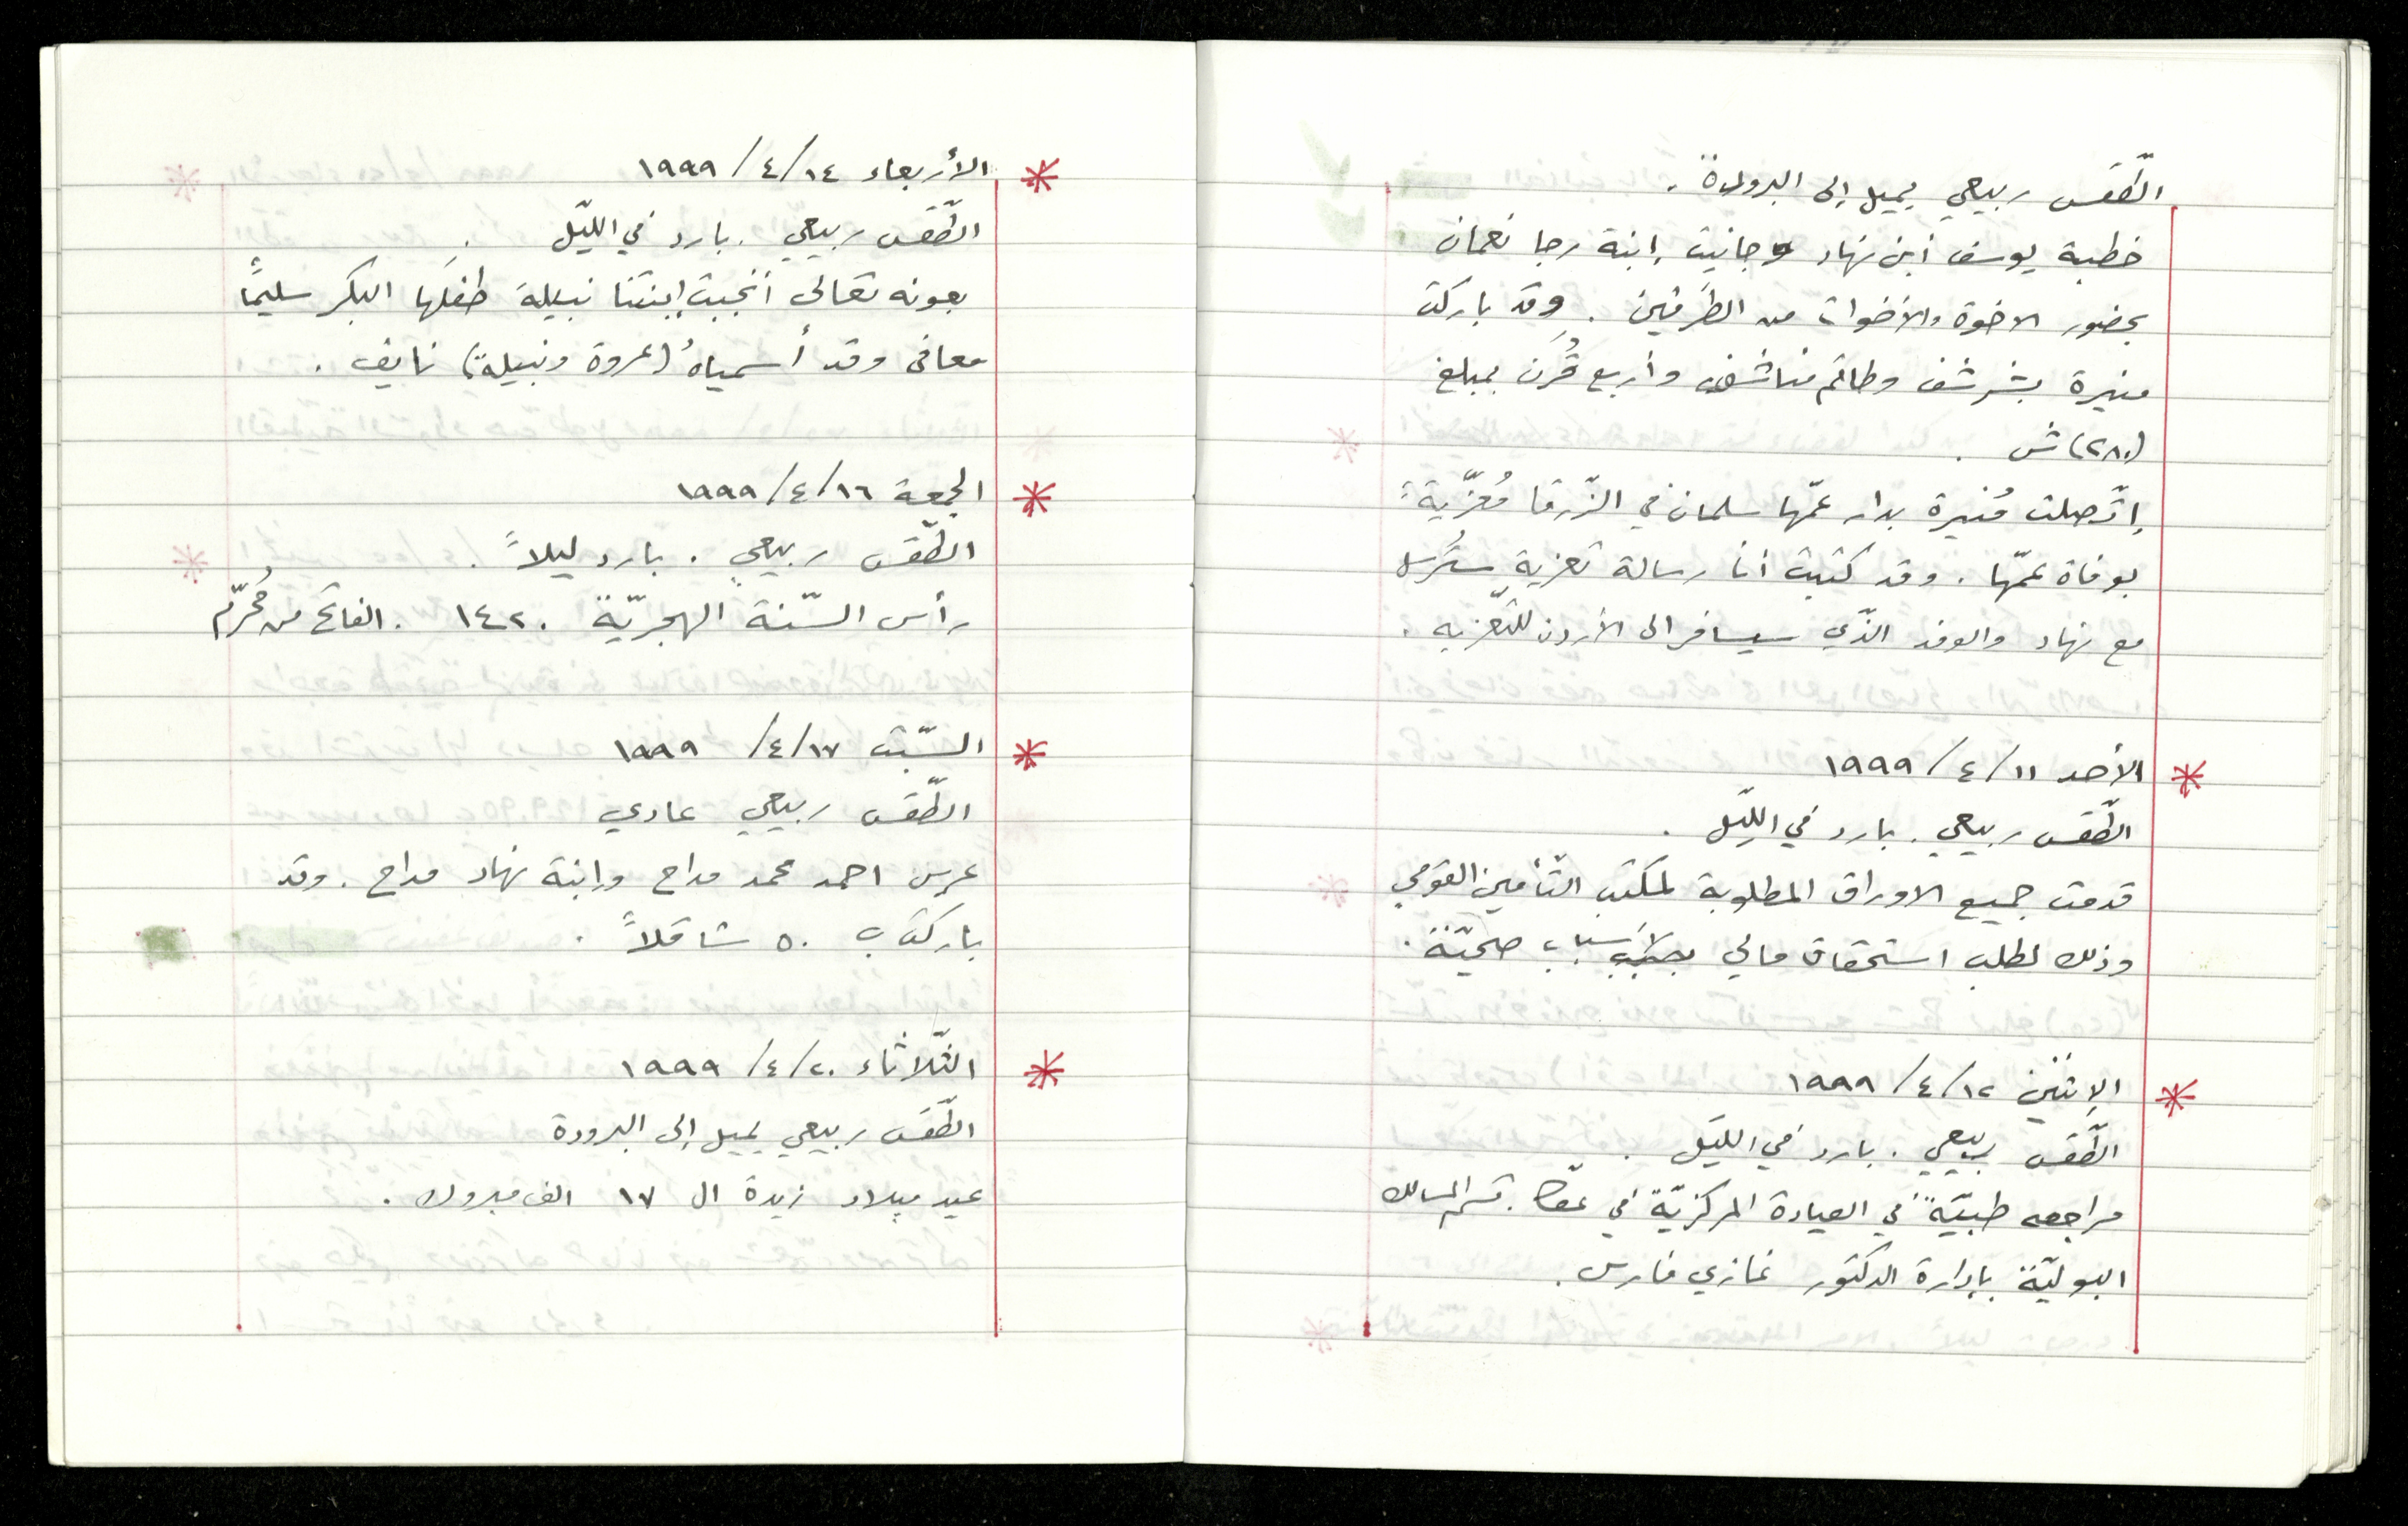 الطّقس ربيعي يميل إلى البرودة.
خطبة يوسف ابن نهاد وجانيت إبنة رجا نعمان
بحضور الاخوة والاخوات من الطرفين. وقد باركت
منيرة بشرشف وطاقم مناشف وأربع قُرَن بمبلغ
(٢٨٠) ش.
إتّصلت مُنيرة بدار عمّها سلمان في الزّرقا مُعزّيةً
بوفاة عمّها. وقد كتبت أنا رسالة تعزية ستُرسل
مع نهاد والوفد الذّي سيسافر الى الأردن للتّعزيه.
الأحد ١١/٤/١٩٩٩
الطّقس ربيعي. بارد في اللّيل.
قدمت جميع الاوراق المطلوبة لمكتب التّأمين القومي
وذلك لطلب استحقاق مالي لأسباب صحيّة.
الإثنين ١٢/٤/١٩٩٩
الطّقس ربيعي. بارد في الليّل.
مراجعه طبيّة في العيادة المركزيّة في عكا. قسم المسالك
البوليّة بإدارة الدكتور غازي فارس.
الأربعاء ١٤/٤/١٩٩٩
الطّقس ربيعي. بارد في الليّل.
بعونه تعالى أنجبت إبنتنا نبيلة طفلها البكر سليماً
معافى وقد أسمياهُ (عروة ونبيلة) نايف.
الجمعة ١٦/٤/١٩٩٩
الطّقس ربيعي. بارد ليلاً.
رأس السّنة الهجريّة ١٤٢٠. الفاتح من مُحرّم
السّبت ١٧/٤/١٩٩٩
الطّقس ربيعي عادي
عرس احمد محمد مداح وإبنة نهاد مداح. وقد
باركنا ب ٥٠ شاقلاً.
الثّلاثاء ٢٠/٤/١٩٩٩
الطّقس ربيعي يميل إلى البرودة
عيد ميلاد زيدة ال ١٧ الف مبروك.